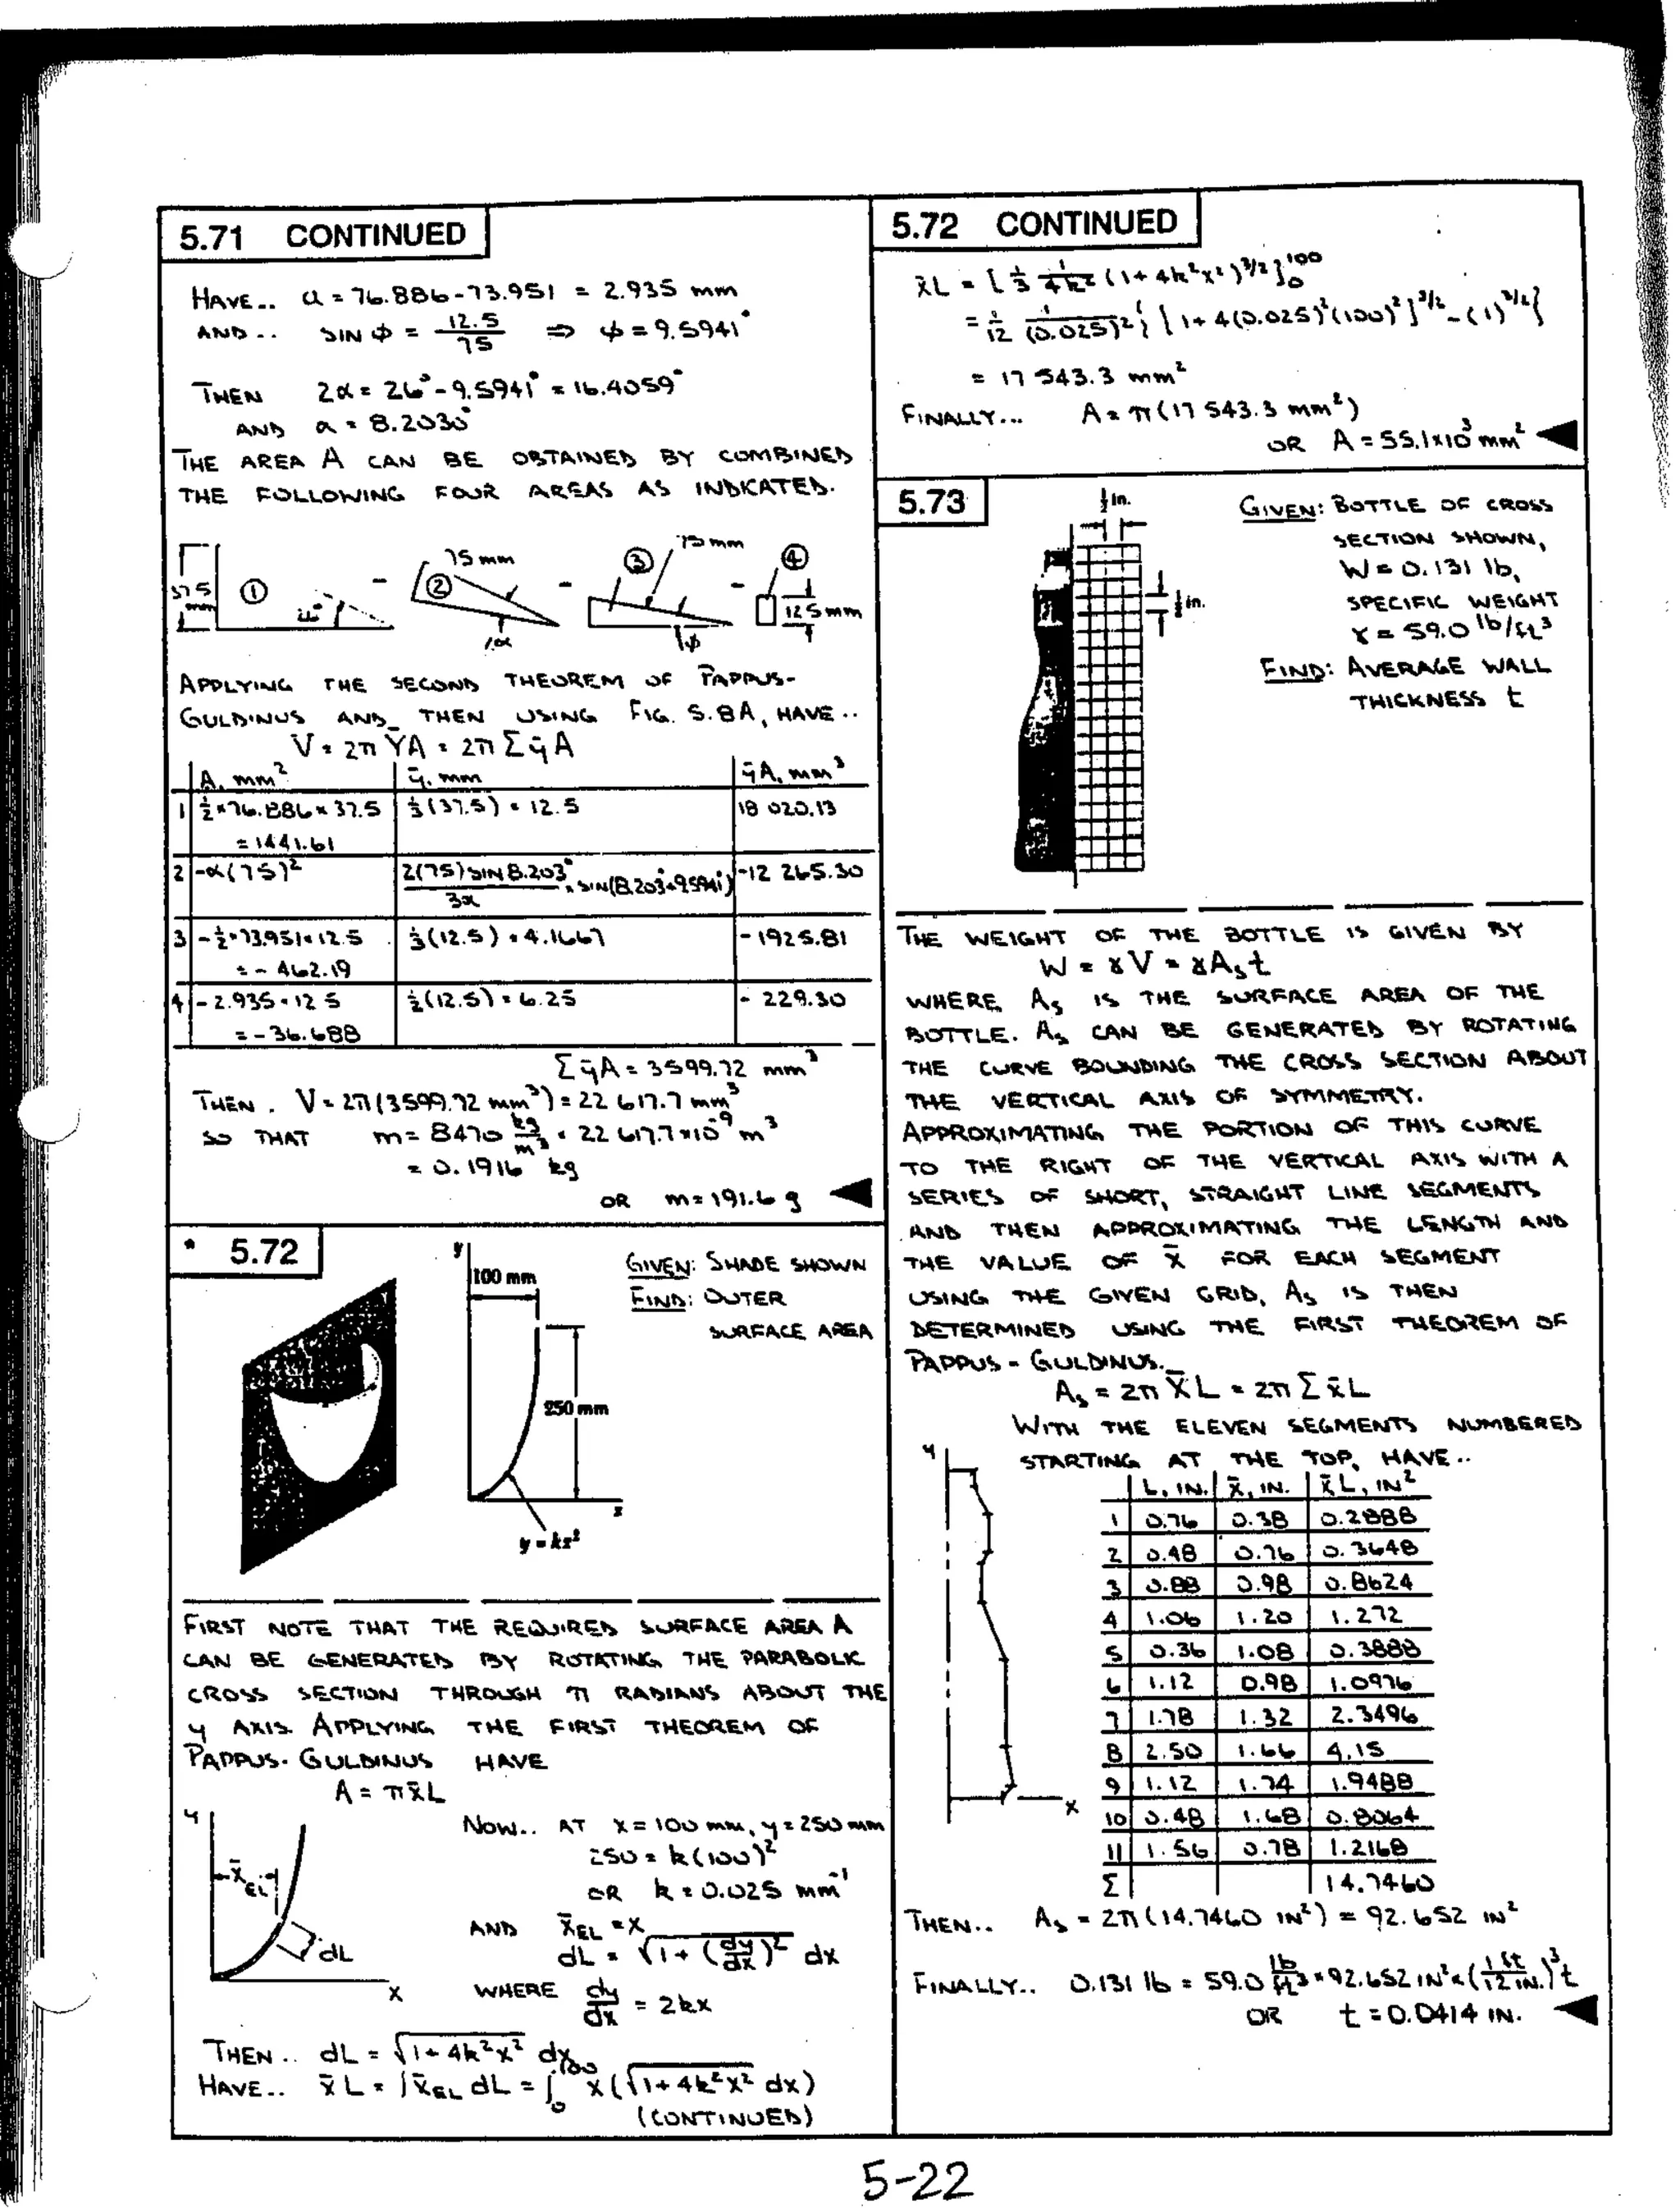 5.71 CONTINUED
HAVE.. a = 76.886-73.951 = 2.935 mm
AND.. SIN φ = 12.5/75 ⇒ φ = 9.5941°
THEN 2α = 26°-9.5941° = 16.4059°
AND α = 8.2030°
THE AREA A CAN BE OBTAINED BY COMBINED
THE FOLLOWING FOUR AREAS AS INDICATED.
37.5 mm ① 26° - 75 mm ② 2α - ③ 75 mm φ - ④ 12.5 mm
APPLYING THE SECOND THEOREM OF PAPPUS-
GULDINUS AND THEN USING FIG. 5.8A, HAVE..
V = 2π ȲA = 2π Σ ȳA
A, mm² ȳ, mm ȳA, mm³
1 ½×76.886×37.5 ⅓(37.5) = 12.5 18 020.13
= 1441.61
2 -α(75)² 2(75)SIN 8.203°/3α × SIN(8.203°+9.5941°) -12 265.30
3 -½×73.951×12.5 ⅓(12.5) = 4.1667 -1925.81
= -462.19
4 -2.935×12.5 ½(12.5) = 6.25 - 229.30
= -36.688
Σ ȳA = 3599.72 mm³
THEN. V = 2π(3599.72 mm³) = 22 617.7 mm³
SO THAT m = 8470 kg/m³ × 22 617.7×10⁻⁹ m³
= 0.1916 kg
OR m = 191.6 g ◄
* 5.72
GIVEN: SHADE SHOWN
FIND: OUTER
SURFACE AREA
y
100 mm
250 mm
x
y = kx²
FIRST NOTE THAT THE REQUIRED SURFACE AREA A
CAN BE GENERATED BY ROTATING THE PARABOLIC
CROSS SECTION THROUGH π RADIANS ABOUT THE
y AXIS. APPLYING THE FIRST THEOREM OF
PAPPUS-GULDINUS HAVE
A = πx̄L
y
x̄EL
dL
x
NOW.. AT x = 100 mm, y = 250 mm
250 = k(100)²
OR k = 0.025 mm⁻¹
AND x̄EL = x
dL = √(1 + (dy/dx)²) dx
WHERE dy/dx = 2kx
THEN.. dL = √(1+4k²x²) dx
HAVE.. x̄L = ∫x̄EL dL = ∫₀¹⁰⁰ x(√(1+4k²x²) dx)
(CONTINUED)
5.72 CONTINUED
x̄L = [⅓ 1/4k² (1+4k²x²)^3/2]₀¹⁰⁰
= 1/12 1/(0.025)² {[1+4(0.025)²(100)²]^3/2 - (1)^3/2}
= 17 543.3 mm²
FINALLY... A = π(17 543.3 mm²)
OR A = 55.1×10³ mm² ◄
5.73
in.
in.
GIVEN: BOTTLE OF CROSS
SECTION SHOWN,
W = 0.131 lb,
SPECIFIC WEIGHT
γ = 59.0 lb/ft³
FIND: AVERAGE WALL
THICKNESS t
THE WEIGHT OF THE BOTTLE IS GIVEN BY
W = γV = γAₛt
WHERE Aₛ IS THE SURFACE AREA OF THE
BOTTLE. Aₛ CAN BE GENERATED BY ROTATING
THE CURVE BOUNDING THE CROSS SECTION ABOUT
THE VERTICAL AXIS OF SYMMETRY.
APPROXIMATING THE PORTION OF THIS CURVE
TO THE RIGHT OF THE VERTICAL AXIS WITH A
SERIES OF SHORT, STRAIGHT LINE SEGMENTS
AND THEN APPROXIMATING THE LENGTH AND
THE VALUE OF x̄ FOR EACH SEGMENT
USING THE GIVEN GRID, Aₛ IS THEN
DETERMINED USING THE FIRST THEOREM OF
PAPPUS-GULDINUS.
Aₛ = 2π X̄L = 2π Σ x̄L
WITH THE ELEVEN SEGMENTS NUMBERED
STARTING AT THE TOP, HAVE..
y
x
L, IN. x̄, IN. x̄L, IN²
1 0.76 0.38 0.2888
2 0.48 0.76 0.3648
3 0.88 0.98 0.8624
4 1.06 1.20 1.272
5 0.36 1.08 0.3888
6 1.12 0.98 1.0976
7 1.78 1.32 2.3496
8 2.50 1.66 4.15
9 1.12 1.74 1.9488
10 0.48 1.68 0.8064
11 1.56 0.78 1.2168
Σ 14.7460
THEN.. Aₛ = 2π(14.7460 IN²) = 92.652 IN²
FINALLY.. 0.131 lb = 59.0 lb/ft³ × 92.652 IN² × (1 ft/12 IN.)³ t
OR t = 0.0414 IN. ◄
5-22